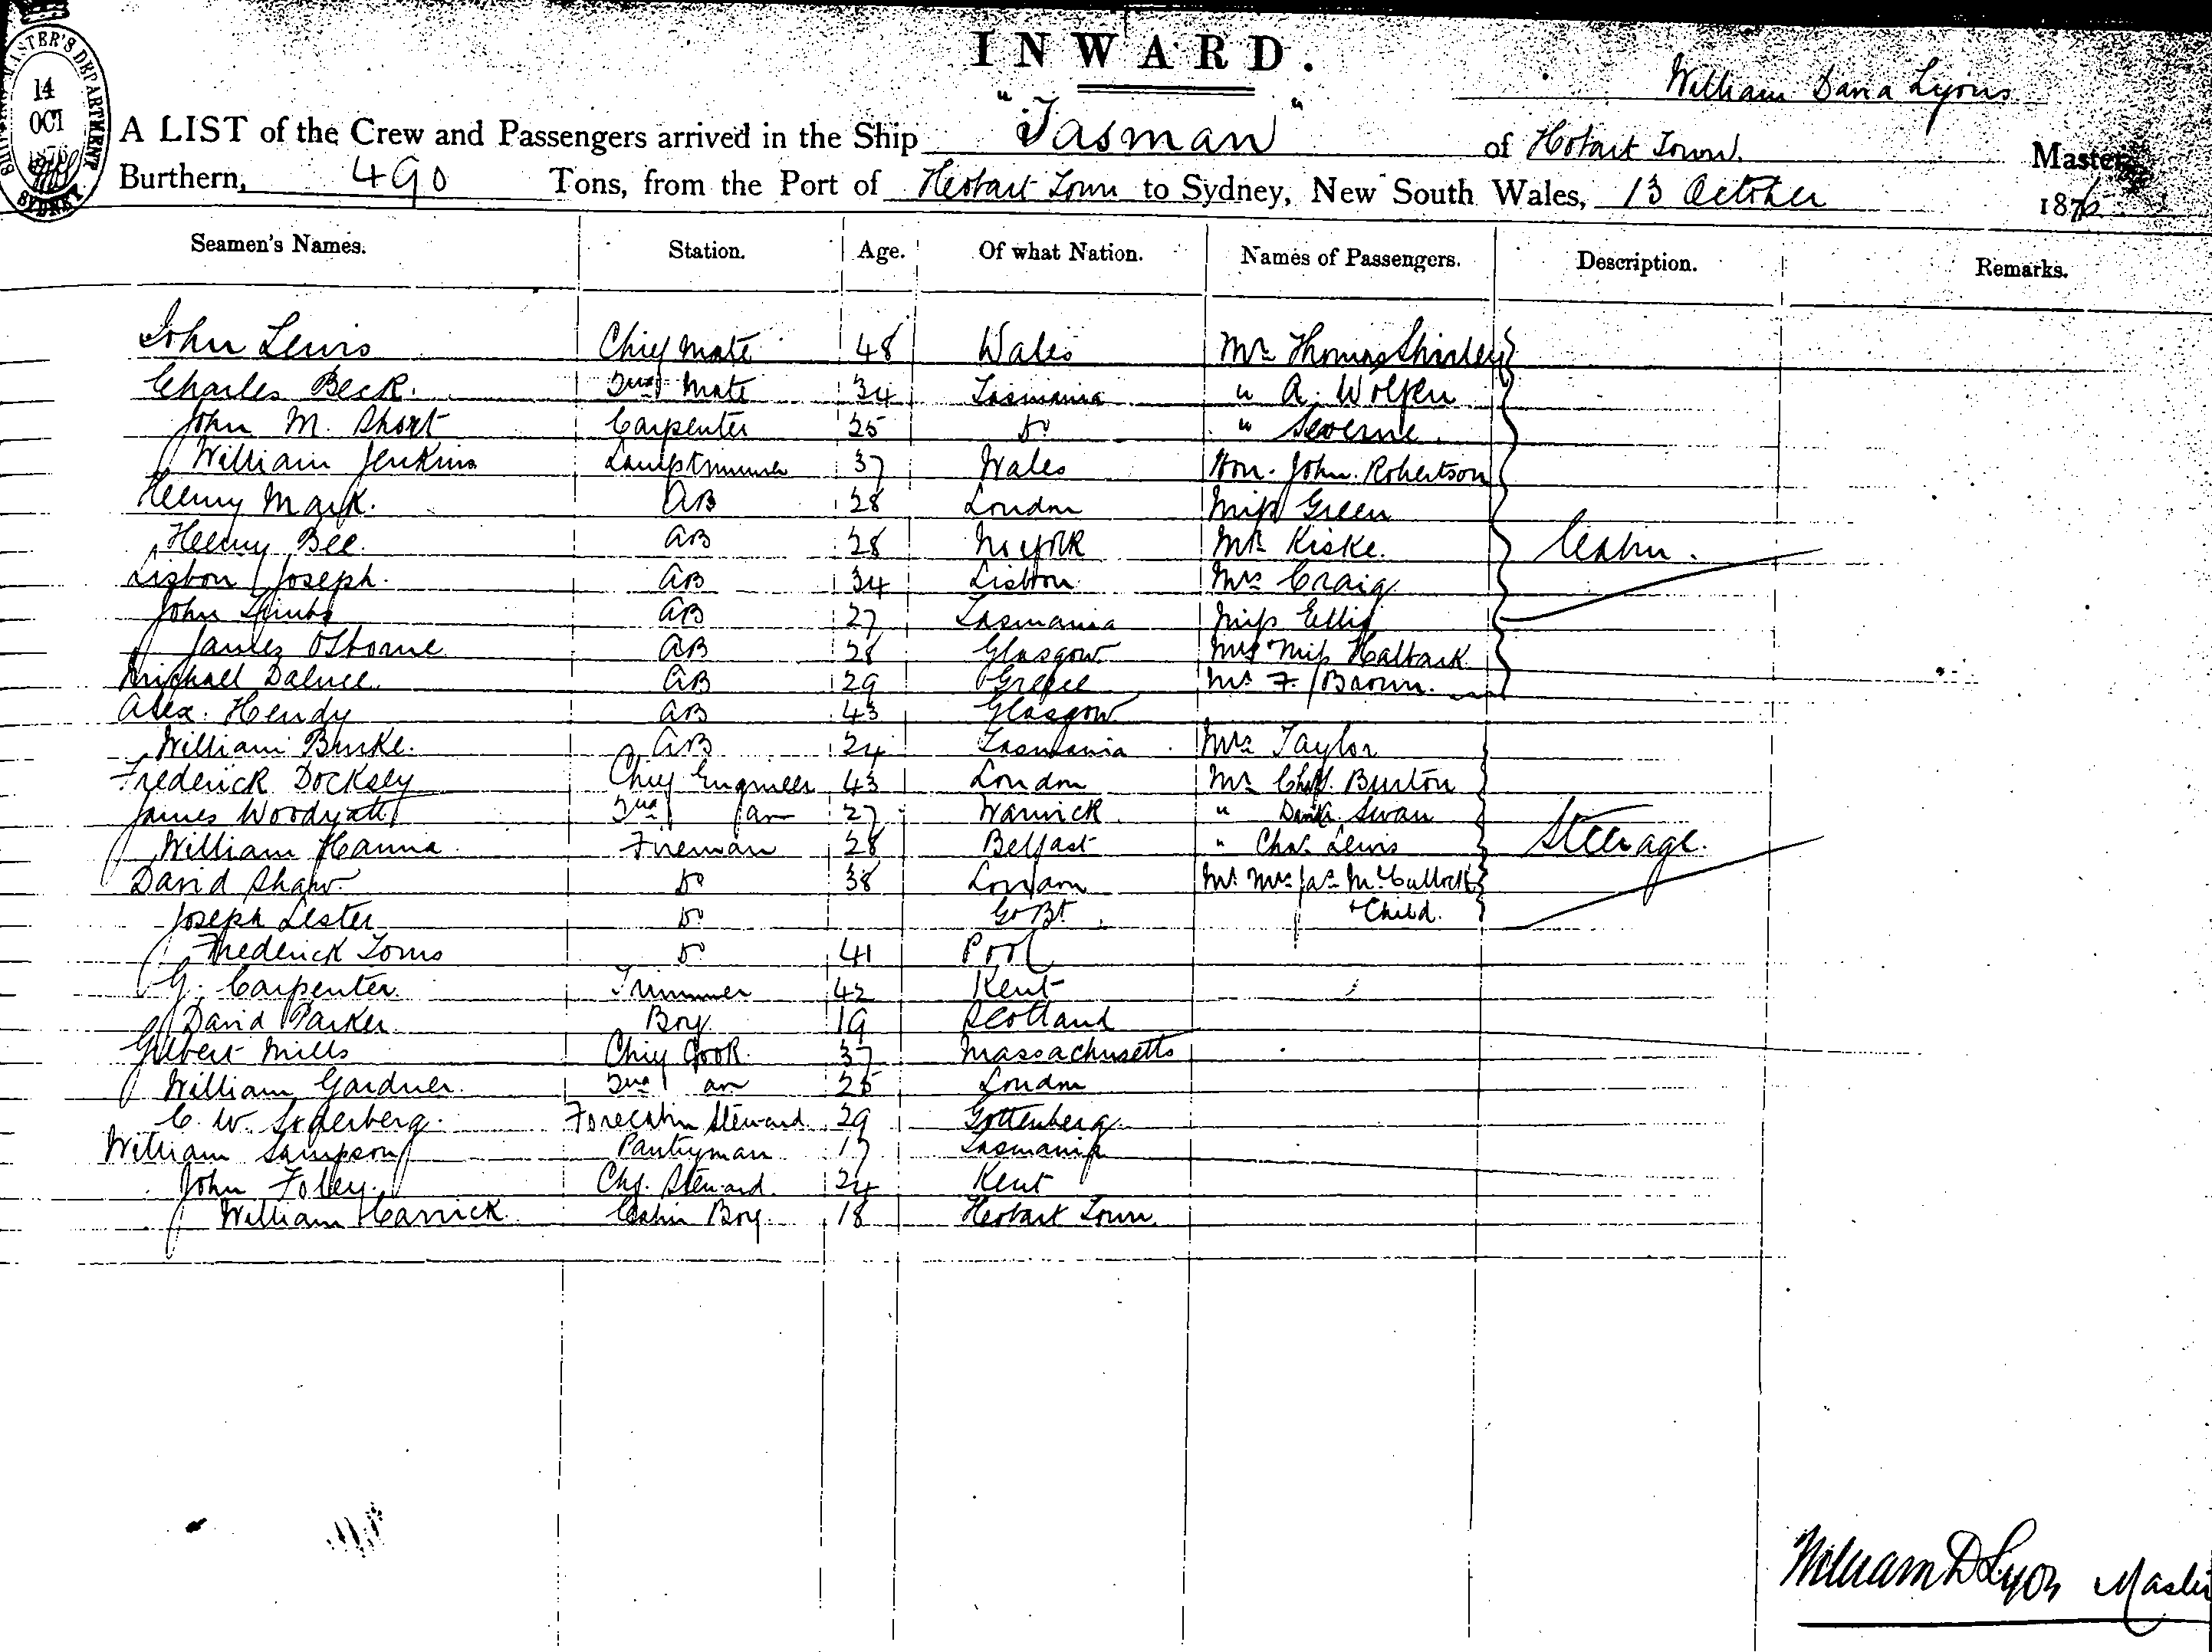 INWARD.
William Dana Lyons
A LIST of the Crew and Passengers arrived in the Ship "Tasman" of Hobart Town. Master
Burthern, 490 Tons, from the Port of Hobart Town to Sydney, New South Wales, 13 October 1876
14
OCT
SYDNEY
Seamen's Names. Station. Age. Of what Nation. Names of Passengers. Description. Remarks.
John Lewis Chief Mate 48 Wales Mr Thomas Shirley
Charles Beck. 2nd Mate 34 Tasmania " A. Wolfen
John M. Short Carpenter 25 Do " Severne.
William Jenkins Lamptrimmer 37 Wales Hon. John Robertson
Henry Mark. AB 28 London Miss Green
Henry Bee. AB 28 N. York Mr Kiske. Cabin.
Lisbon Joseph. AB 34 Lisbon Mrs Craig
John AB 27 Tasmania Miss Ellis
James Osborne AB 28 Glasgow Mrs Miss Halback
Michael AB 29 Greece Mr F. Brown.
Alex. Hendy AB 43 Glasgow
William Burke. AB 24 Tasmania Mrs Taylor
Frederick Docksey Chief Engineer 43 London Mr Chas. Burton
James Woodyatt 2nd 27 Warwick " Swan
William Hanna. Fireman 28 Belfast " Chas. Lewis Steerage.
David Shaw. Do 38 London Mr Mrs Jas McCullock
Joseph Lester Do Go Bt. + Child.
Frederick Toms Do 41 Pool
G. Carpenter. Trimmer 42 Kent
David Parker Boy 19 Scotland
Gilbert Mills Chief Cook. 37 Massachusetts
William Gardner. 2nd 25 London
C. W. Soderberg. Forecabin Steward 29 Gottenberg
William Sampson Pantryman 17 Tasmania
John Foley. Chf. Steward. 24 Kent
William Carrick. Cabin Boy. 18 Hobart Town.
William D Lyons Master